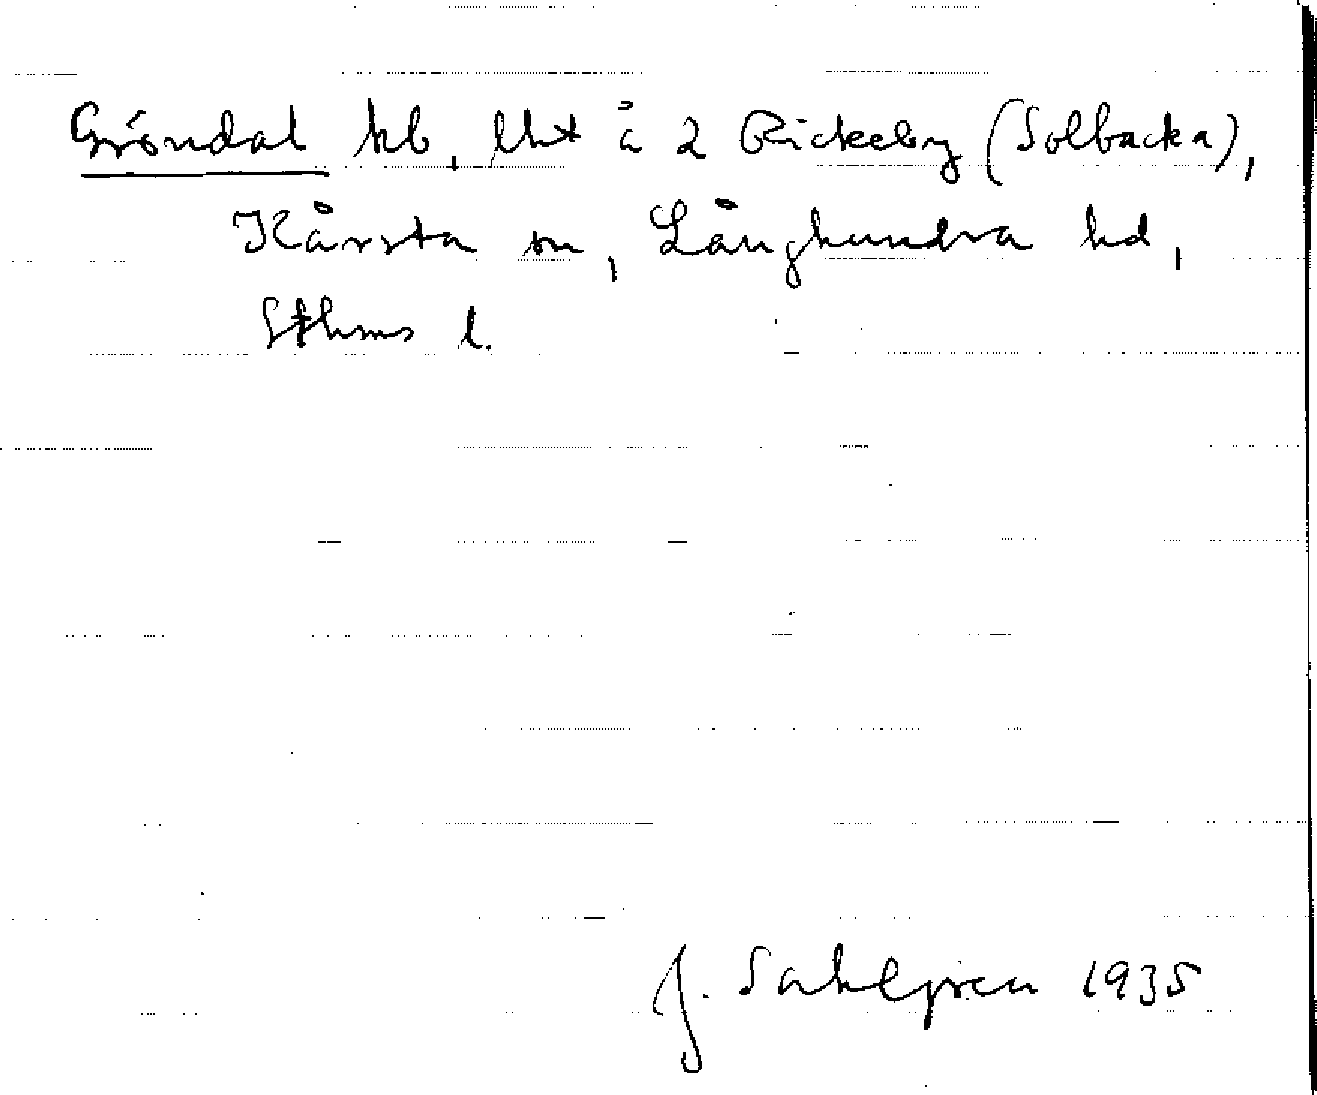 Gröndal hb, lht å 2 Rickeby (Solbacka),
Kårsta sn, Långhundra hd,
Sthms l.
J. Sahlgren 1935